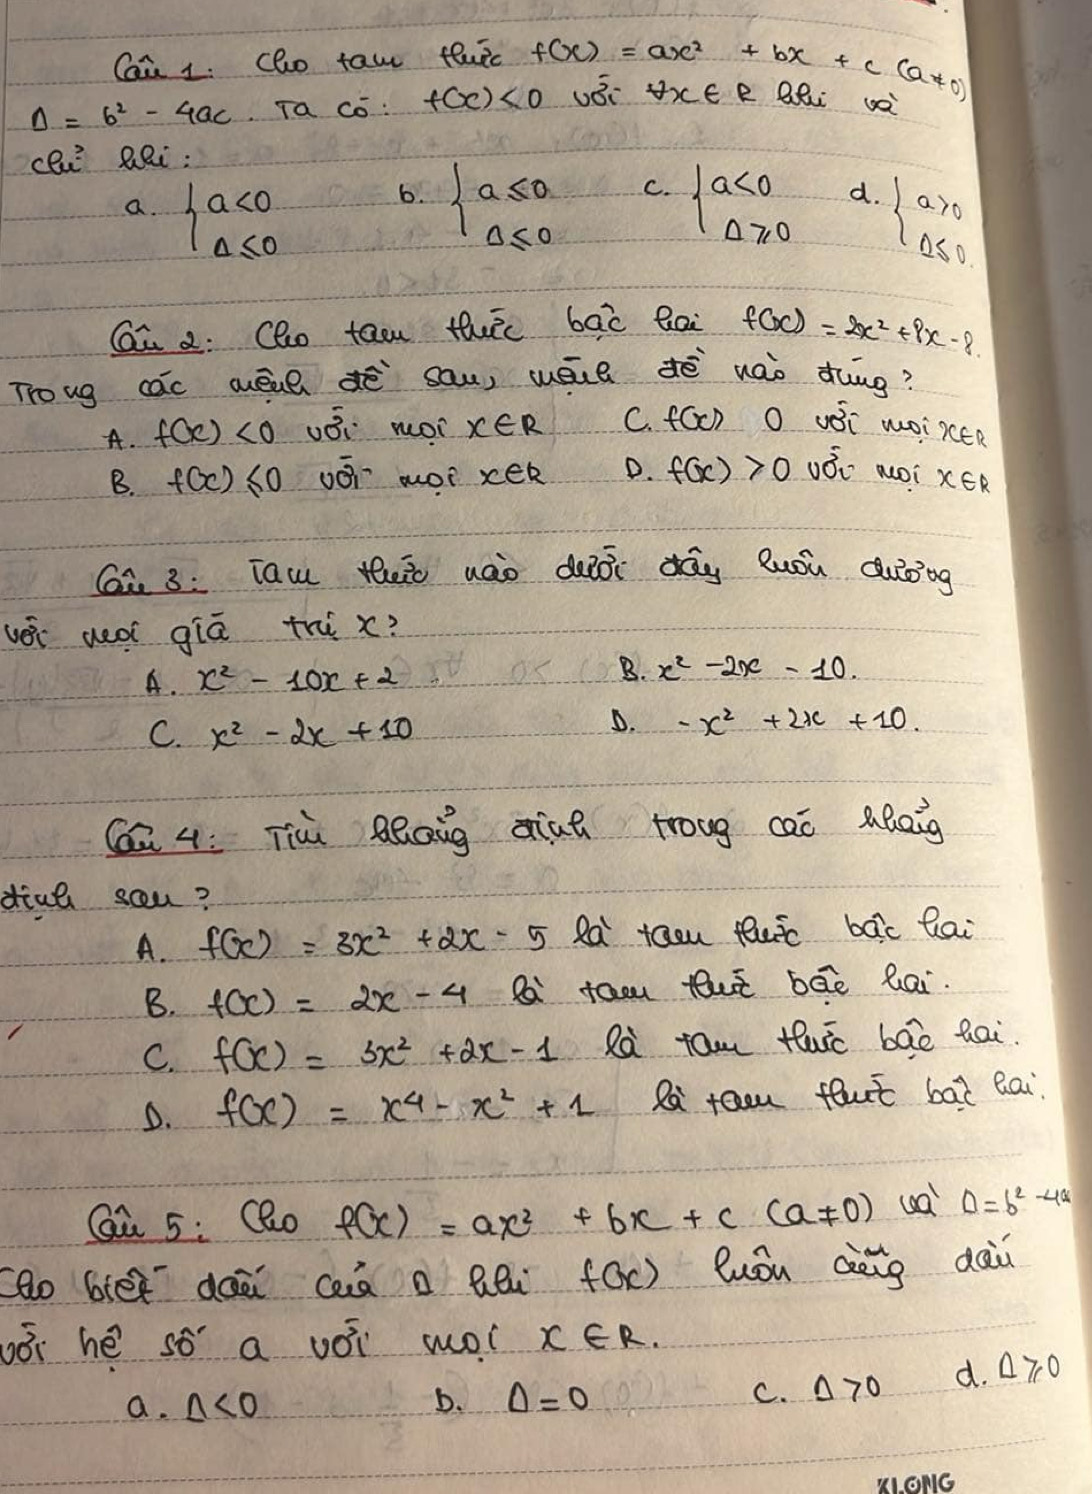 Câu 1: Cho tam thức f(x) = ax² + bx + c (a≠0)
Δ = b² - 4ac. Ta có: f(x) ≤ 0 với ∀x ∈ R khi và
chỉ khi:
a. { a<0 Δ≤0 b. { a≤0 Δ≤0 c. { a<0 Δ⩾0 d. { a>0 Δ≤0.
Câu 2: Cho tam thức bậc hai f(x) = 2x² + 8x - 8.
Trong các mệnh đề sau, mệnh đề nào đúng?
A. f(x) < 0 với mọi x∈R C. f(x) 0 với mọi x∈R
B. f(x) ≤ 0 với mọi x∈R D. f(x) > 0 với mọi x∈R
Câu 3: Tam thức nào dưới đây luôn dương
với mọi giá trị x?
A. x² - 10x + 2 B. x² - 2x - 10.
C. x² - 2x + 10 D. -x² + 2x + 10.
Câu 4: Tìm khẳng định trong các khẳng
định sau?
A. f(x) = 3x² + 2x - 5 là tam thức bậc hai
B. f(x) = 2x - 4 là tam thức bậc hai.
C. f(x) = 3x² + 2x - 1 là tam thức bậc hai.
D. f(x) = x⁴ - x² + 1 là tam thức bậc hai.
Câu 5: Cho f(x) = ax² + bx + c (a≠0) và Δ = b² - 4ac
Cho biết dấu của Δ khi f(x) luôn cùng dấu
với hệ số a với mọi x ∈ R.
a. Δ<0 b. Δ=0 c. Δ>0 d. Δ⩾0
KLONG